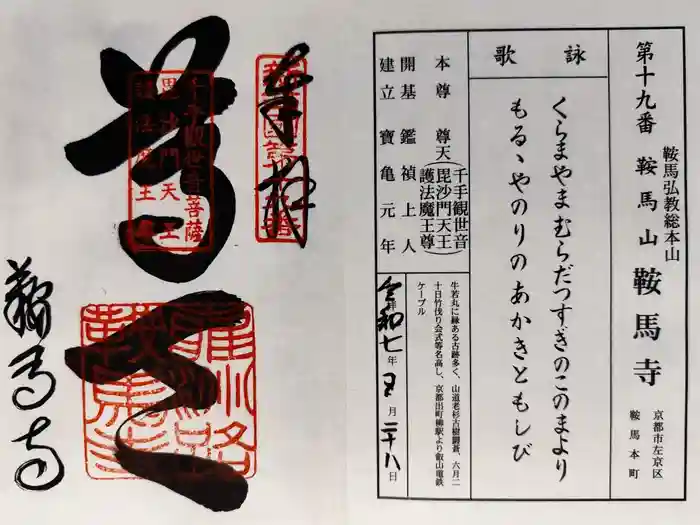 第十九番 鞍馬山 鞍馬寺
鞍馬弘教総本山
京都市左京区
鞍馬本町
詠歌
くらまやまむらだつすぎのこのまより
もるゝやのりのあかきともしび
本尊 尊天(千手観世音
毘沙門天王
護法魔王尊)
開基 鑑禎上人
建立 寶亀元年
牛若丸に縁ある古跡多く、山道老杉古樹鬱蒼、六月二
十日竹伐り会式等名高し、京都出町柳駅より叡山電鉄
ケーブル
令和七年五月二十八日
奉拝
尊天
千手観世音菩薩
毘沙門天王
護法魔王尊
鞍馬寺